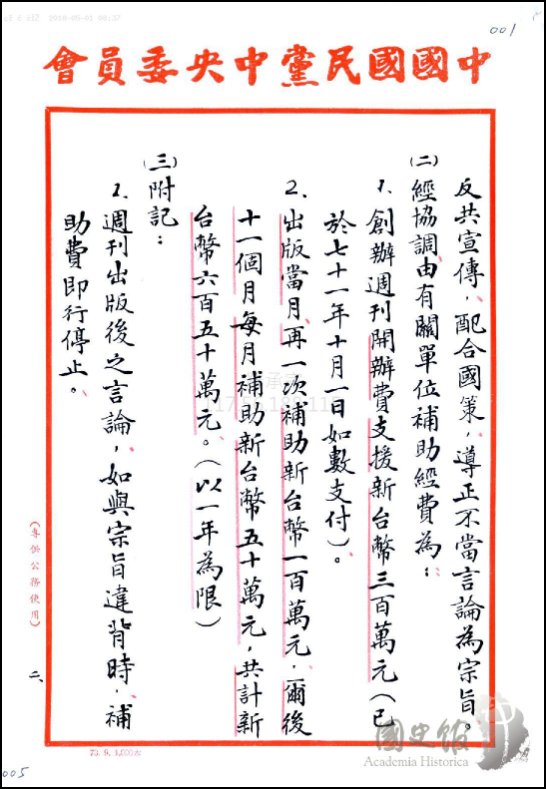 001
中國國民黨中央委員會
反共宣傳，配合國策，導正不當言論為宗旨。
(二)經協調由有關單位補助經費為：
1.創辦週刊開辦費支援新台幣三百萬元(已
於七十一年十月一日如數支付)。
2.出版當月再一次補助新台幣一百萬元，爾後
十一個月每月補助新台幣五十萬元，共計新
台幣六百五十萬元。(以一年為限)
(三)附記：
1.週刊出版後之言論，如與宗旨違背時，補
助費即行停止。
(專供公務使用)
二
國史館
Academia Historica
005